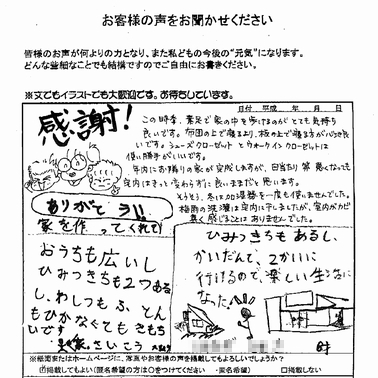 お客様の声をお聞かせください
皆様のお声が何よりの力となり、また私どもの今後の“元気”になります。
どんな些細なことでも結構ですのでご自由にお書きください。
※文でもイラストでも大歓迎です。お待ちしています。
日付 平成 年 月 日
感謝!
この時季、素足で家の中を歩けるのがとても気持ち
良いです。布団の上で寝るより、板の上で寝る方が
いです。シューズクローゼットとウォークインクローゼットは
使い勝手がいいです。
年内にお隣りの家が完成しますが、日当たり等 悪くなっても
室内はきっと変わらずに良いままだと思います。
そうそう、冬は加湿器を一度も使いませんでした。
梅雨の洗濯は室内に干しましたが、室内がカビ
臭く感じることはありませんでした。
ありがとう!!
家を作ってくれて!
おうちも広いし
ひみつきちも2つある
し、わしつも ふとん
もひかなくてもきもち
いいです
家。さいこう
ひみつきちもあるし、
かいだんで、2かいに
行けるので、楽しい生活に
なった!
8才
※紙面またはホームページに、写真やお客様の声を掲載してもよろしいでしょうか?
掲載してもよい(匿名希望の方は○をつけてください ・匿名希望) □掲載しないでほしい